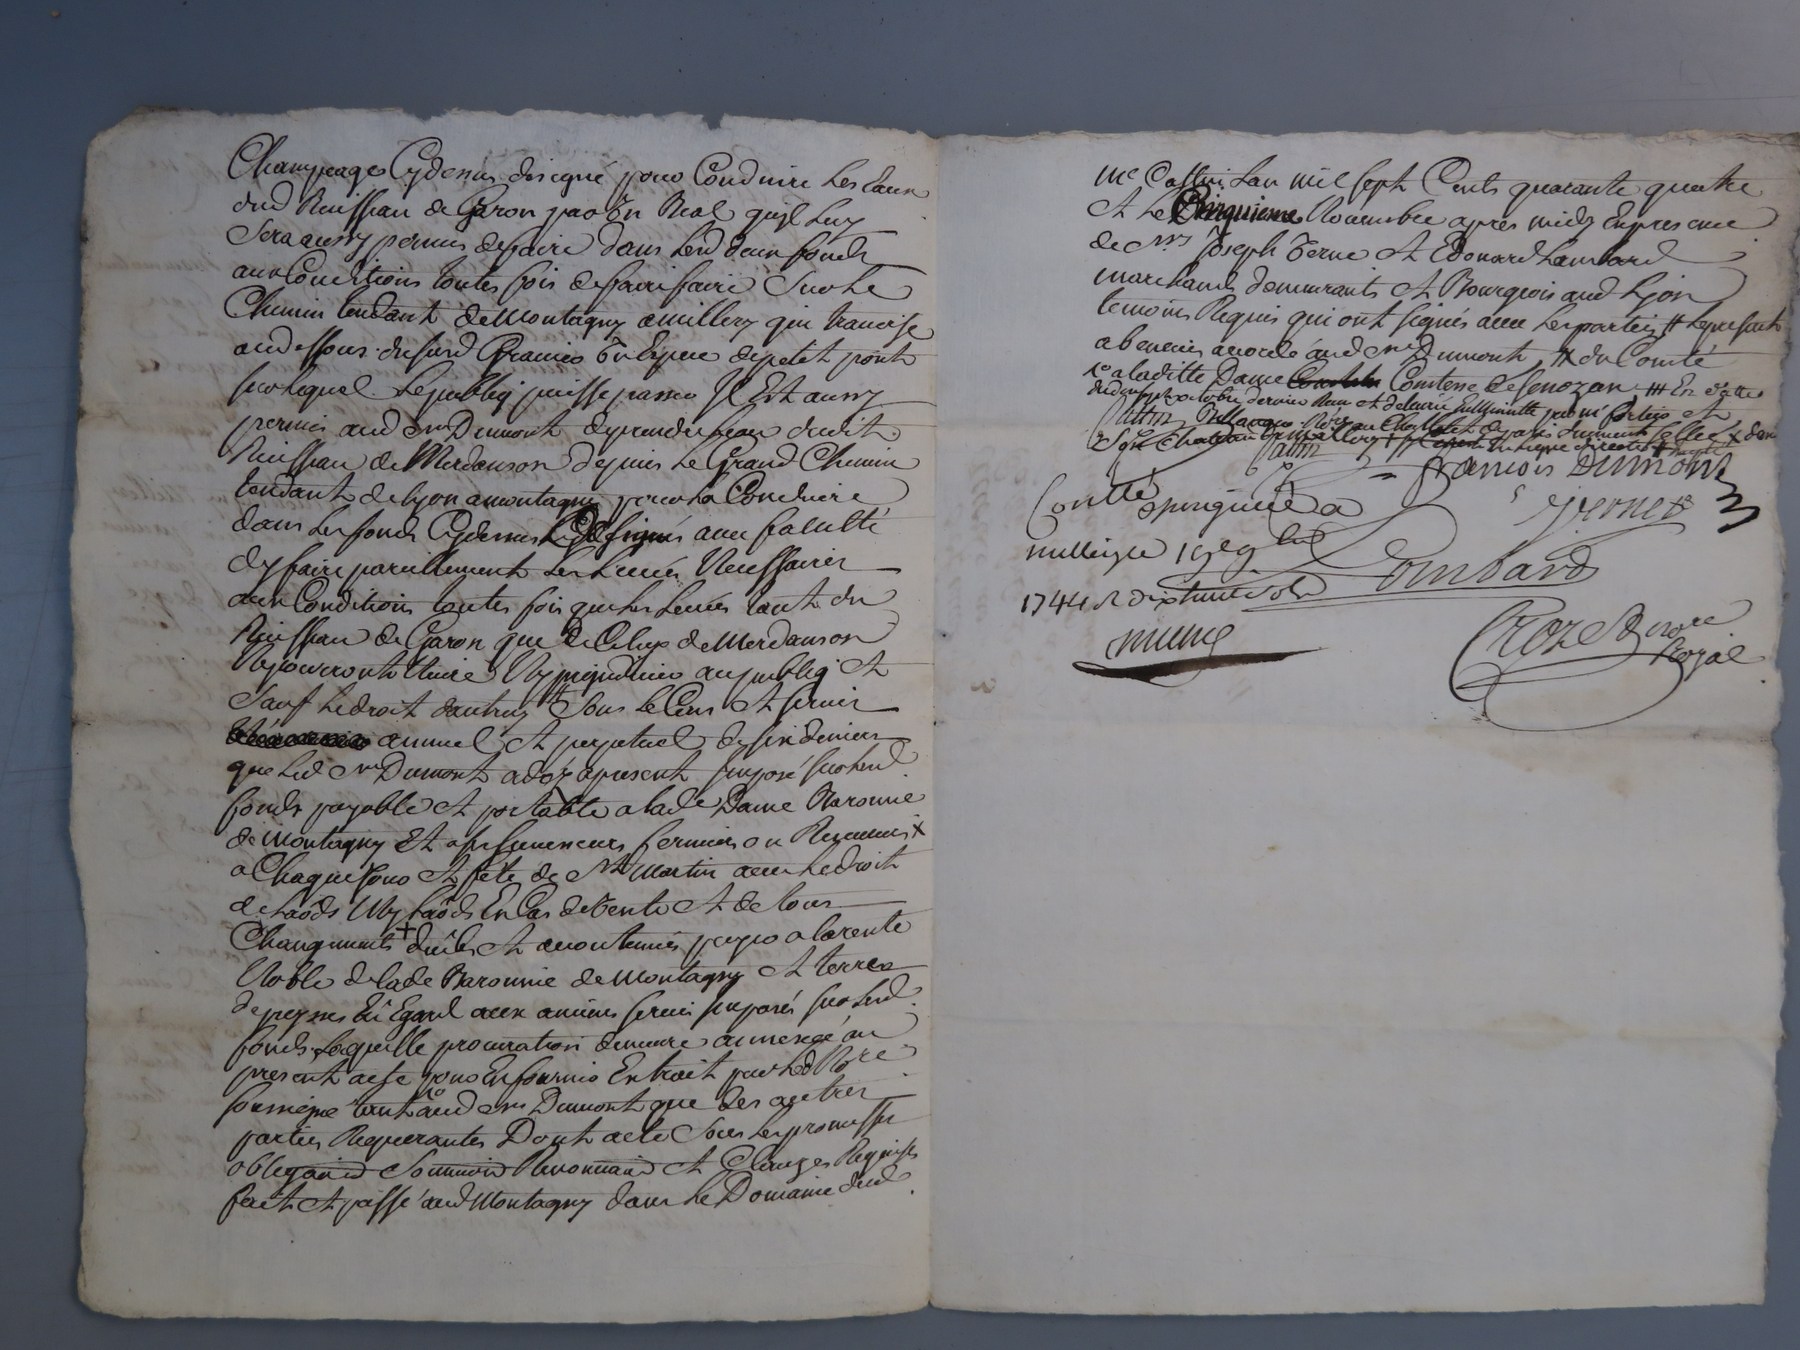 Champeages Cydessus designé pour Conduire Les Eaux
dud Ruisseau de Garon par Un Beal quil Luy
Sera aussy permis de faire dans Lesd deux fonds
aux Conditions toutes fois de faire faire Sur Le
Chemin tendant de Montagny a millery qui traverse
au dessous dusud Gravier Un Espece de petit pont
sur Lequel Le publiq puisse passer Il Est aussy
permis aud Sr Dumont de prendre Leau dudit
Ruisseau de Merdanson depuis Le Grand Chemin
tendant de Lyon a montagny pour La Conduire
dans Les fonds Cydessus designés avec faculté
dy faire pareillement Les Levées Necessaires
aux Conditions toutes fois que Les Levées tant du
Ruisseau de Garon que de Celuy de Merdanson
Ne pourront Nuire Ny prejudicier au publiq Et
Sauf Le droit dautruy Sous Le Cens Et Servis
annuel Et perpetuel de six deniers
que Led Sr Dumont a dez apresent Imposé sur Lesd
fonds payable Et portable a lade Dame Baronne
de Montagny Et a ses successeurs fermiers ou Receveurs x
a Chaque Jour Et fête de St Martin avec Le droit
de Laods My Laods En Cas de Vente Et de tous
Changements + deüs Et accoutumés payer a la rente
Noble de lade Baronnie de Montagny Et terres
En Egard aux anciens servis Imposés sur Lesd
fonds Laquelle procuration demeure annexée au
present acte pour En fournir Extrait par Led Nore
soussigné tant aud Sr Dumont que des autres
parties Requerantes Dont acte Sous Les promesses
obligaons Soumions Renonnaons Et Clauzes Requises
fait Et passé aud Montagny dans Le Domaine dud
Me Lan mil Sept Cents quarante quatre
Et Le Cinquieme Novembre apres midy En presence
de Srs Joseph Verne Et Edouard Lambard
marchands demeurants Et Bourgeois aud Lyon
temoins Requis qui ont signés avec Les parties # Le present
abenevis accordé aud Sr Dumont # du Comté
a laditte Dame Comtesse de Senozan ## En datte
dernier Et
François Dumont
Vernet
Controllé
a
1744 R dix huit sols
Lombard
Croze Nore
Royal